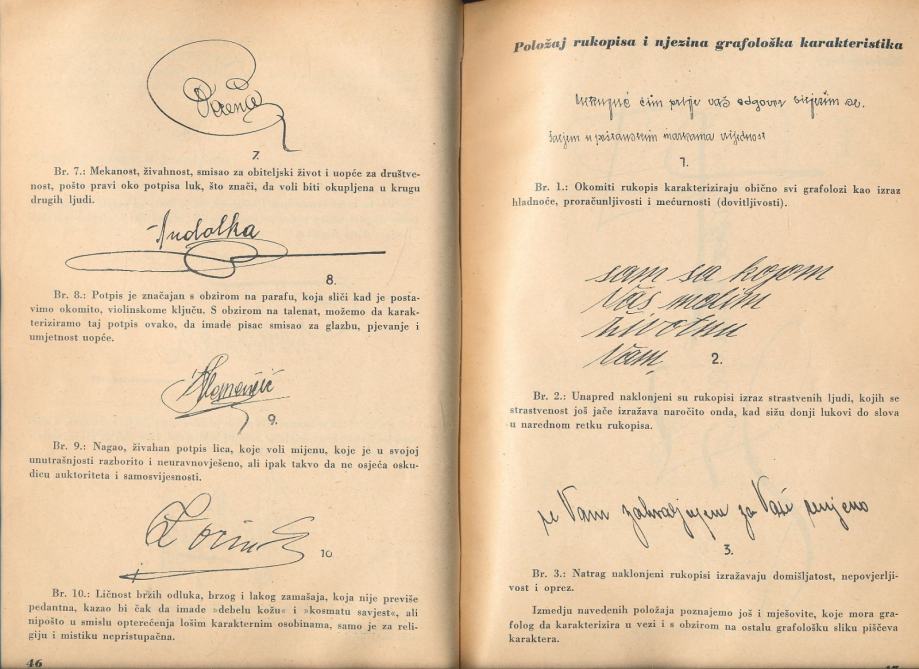 7.
Br. 7.: Mekanost, živahnost, smisao za obiteljski život i uopće za društve-
nost, pošto pravi oko potpisa luk, što znači, da voli biti okupljena u krugu
drugih ljudi.
8.
Br. 8.: Potpis je značajan s obzirom na parafu, koja sliči kad je posta-
vimo okomito, violinskome ključu. S obzirom na talenat, možemo da karak-
teriziramo taj potpis ovako, da imade pisac smisao za glazbu, pjevanje i
umjetnost uopće.
9.
Br. 9.: Nagao, živahan potpis lica, koje voli mijenu, koje je u svojoj
unutrašnjosti razborito i neuravnovješeno, ali ipak takvo da ne osjeća osku-
dicu auktoriteta i samosvijesnosti.
10
Br. 10.: Ličnost bržih odluka, brzog i lakog zamašaja, koja nije previše
pedantna, kazao bi čak da imade »debelu kožu« i »kosmatu savjest«, ali
nipošto u smislu opterećenja lošim karakternim osobinama, samo je za reli-
giju i mistiku nepristupačna.
46
Položaj rukopisa i njezina grafološka karakteristika
čim prije vaš odgovor bilježim se.
šaljem u poštanskim markama vrijednost
1.
Br. 1.: Okomiti rukopis karakteriziraju obično svi grafolozi kao izraz
hladnoće, proračunljivosti i mećurnosti (dovitljivosti).
sam sa kojom
Vas molim
životnu
Vam
2.
Br. 2.: Unapred naklonjeni su rukopisi izraz strastvenih ljudi, kojih se
strastvenost još jače izražava naročito onda, kad sižu donji lukovi do slova
u narednom retku rukopisa.
se Vam zahvaljujem za Vaše
3.
Br. 3.: Natrag naklonjeni rukopisi izražavaju domišljatost, nepovjerlji-
vost i oprez.
Izmedju navedenih položaja poznajemo još i mješovite, koje mora gra-
folog da karakterizira u vezi i s obzirom na ostalu grafološku sliku piščeva
karaktera.